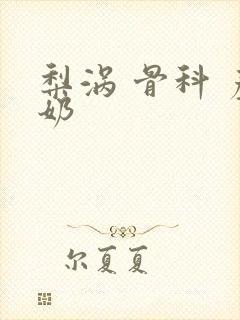 梨涡 骨科
奶
尔夏夏